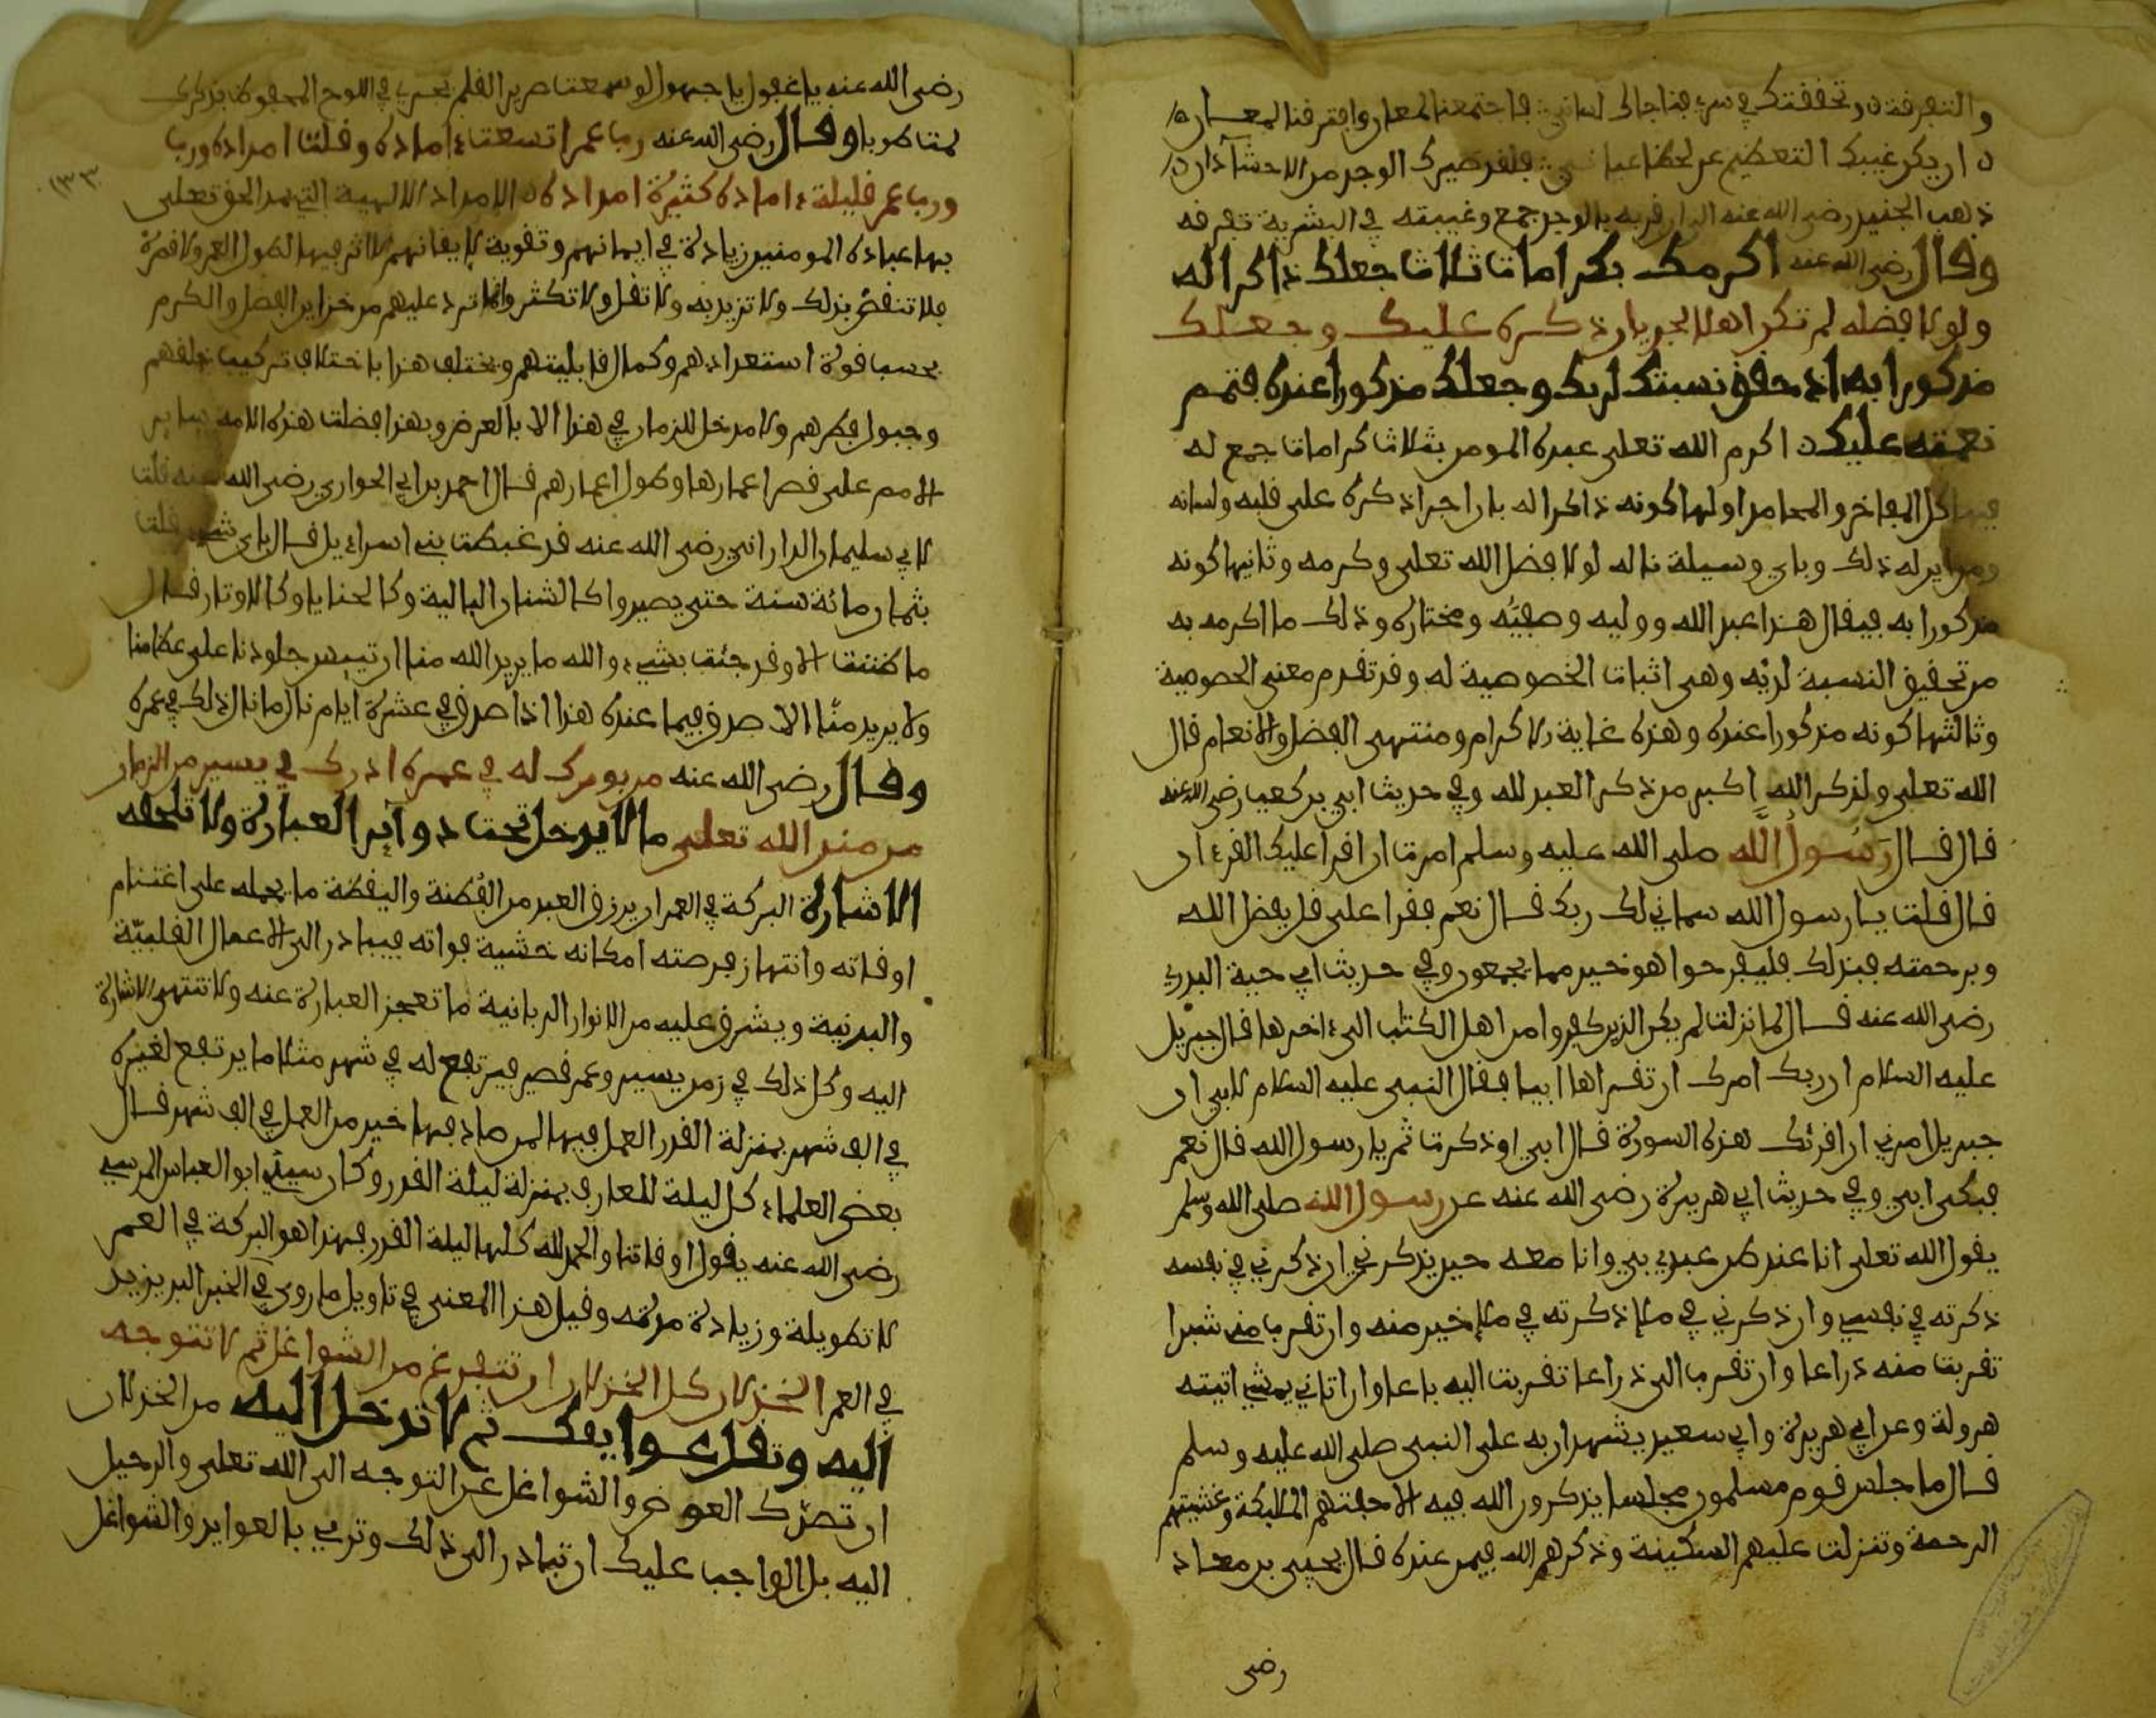 والتفرقة ن وتحققتك في سري فناجاك لساني فاجتمعنا لمعان وافترقنا لمعان
ن ان يكن غيبك التعظيم عن لحظ عياني فلقد صيرك الوجد من الاحشا دان
ذهب الجنيد رضي الله عنه الى ان قربه بالوجد جمع وغيبته في البشرية تفرقه
وقال رضي الله عنه اكرمك بكرامات ثلاث جعلك ذاكرا له
ولولا فضله لم تكن اهلا لجريان ذكره عليك وجعلك
مذكورا به اذ حقق نسبتك لديك وجعلك مذكورا عنده فتمم
نعمته عليك ن اكرم الله تعلى عبده المومن بثلاث كرامات جمع له
فيها كل المفاخر والمحامد اولها كونه ذاكرا له بان اجرا ذكره على قلبه ولسانه
ومن اين له ذلك وباي وسيلة ناله لولا فضل الله تعلى وكرمه وثانيها كونه
مذكورا به فيقال هذا عبد الله ووليه وصفيّه ومختاره وذلك ما اكرمه به
من تحقيق النسبة لديه وهي اثبات الخصوصية له وقد تقدم معنى الخصوصية
وثالثها كونه مذكورا عنده وهذه غاية الاكرام ومنتهى الفضل والانعام قال
الله تعلى ولذكر الله اكبر من ذكر العبد لله وفي حديث ابي بن كعب رضي الله عنه
قال قال رسول الله صلى الله عليه وسلم امرت ان اقرا عليك القرءان
قال قلت يا رسول الله سماني لك ربك قال نعم فقرا علي قل بفضل الله
وبرحمته فبذلك فليفرحوا هو خير مما يجمعون وفي حديث ابي حية البدري
رضي الله عنه قال لما نزلت لم يكن الذين كفروا من اهل الكتب الى ءاخرها قال جبريل
عليه السلام ان ربك امرك ان تقراها ابيا فقال النبي عليه السلام لابي ان
جبريل امرني ان اقرئك هذه السورة قال ابي اوذكرت ثم يا رسول الله قال نعم
فبكى ابي وفي حديث ابي هريرة رضي الله عنه عن رسول الله صلى الله وسلم
يقول الله تعلى انا عند ظن عبدي بي وانا معه حين يذكرني ان ذكرني في نفسه
ذكرته في نفسي وان ذكرني في ملإ ذكرته في ملإ خير منه وان تقرب مني شبرا
تقربت منه ذراعا وان تقرب الي ذراعا تقربت اليه باعا وان اتاني يمشي اتيته
هرولة وعن ابي هريرة وابي سعيد يشهدان به على النبي صلى الله عليه وسلم
قال ما جلس قوم مسلمون مجلسا يذكرون الله فيه الا حفتهم الملئكة وغشيتهم
الرحمة وتنزلت عليهم السكينة وذكرهم الله فيمن عنده قال يحيى بن معاذ
رضي
رضي الله عنه يا غفول يا جهول لو سمعت صرير القلم يجري في اللوح المحفوظ بذكرك
لمت طربا وقال رضي الله عنه رب عمر اتسعت ءاماده وقلت امداده ورب
ورب عمر قليلة ءاماده كثيرة امداده ن الامداد الالهية التي يمد الحق تعلى
بها عباده المومنين زيادة في ايمانهم وتقوية لإيقانهم لا اثر فيها لطول العمر ولا قصره
فلا تنقص بذلك ولا تزيد به ولا تقل ولا تكثر وانما ترد عليهم من خزاين الفضل والكرم
بحسب قوة استعدادهم وكمال قابليتهم ويختلف هذا باختلاف تركيب خلقهم
وجبول فطرهم ولا مدخل للزمان في هذا الا بالعرض وبهذا فضلت هذه الامة ساير
الامم على قصر اعمارها وطول اعمارهم قال احمد بن ابي الحواري رضي الله عنه قلت
لابي سليمان الداراني رضي الله عنه قد غبطت بني اسراءيل قال باي شيء قلت
بثمان مائة سنة حتى يصيروا كالشنان البالية وكالحنايا وكالاوتار قال
ما ظننت الا وقد جئت بشيء والله ما يريد الله منا ان تيبس جلودنا على عظامنا
ولا يريد منّا الا صدق فيما عنده هذا اذا صدق في عشرة ايام نال ما نال ذلك في عمره
وقال رضي الله عنه من بورك له في عمره ادرك في يسير من الزمان
من منن الله تعلى ما لا يدخل تحت دوآير العبارة ولا تلحقه
الاشارة البركة في العمر ان يرزق العبد من الفطنة واليقظة ما يحمله على اغتنام
اوقاته وانتهاز فرصته امكانه خشية فواته فيبادر الى الاعمال القلبيّة
والبدنية ويشرق عليه من الانوار الربانية ما تعجز العبارة عنه ولا تنتهي الاشارة
اليه وكل ذلك في زمن يسير وعمر قصير فيرتفع له في شهر مثلا ما يرتفع لغيره
في الف شهر بمنزلة القدر العمل فيها لمن صادفها خير من العمل في الف شهر قال
بعض العلماء كل ليلة للعارف بمنزلة ليلة القدر وكان سيدي ابو العباس المرسي
رضي الله عنه يقول اوقاتنا والحمد لله كلها ليلة القدر فهذا هو البركة في العمر
لا تطويلة وزيادة مدته وقيل هذا المعنى في تاويل ما روي في الخبر البر يزيد
في العمر الخذلان كل الخذلان ان تتفرغ من الشواغل ثم لا تتوجه
اليه وتقل عوايقك ثم لا ترحل اليه من الخذلان
ان تصدّك العوض والشواغل عن التوجه الى الله تعلى والرحيل
اليه بل الواجب عليك ان تبادر الى ذلك وترمي بالعوايد والشواغل
١٣٣